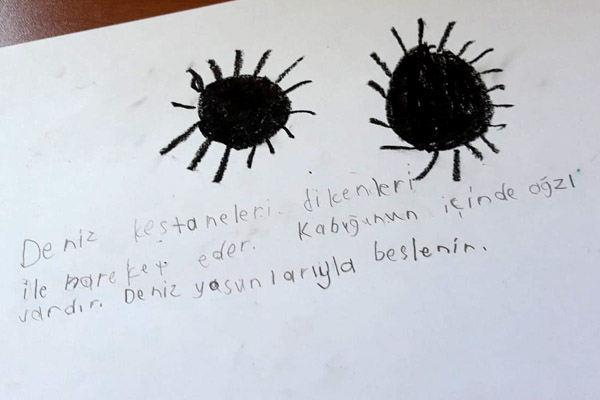 Deniz kestaneleri. dikenleri
ile hareket eder. Kabığunun içinde ağzı
vardır. Deniz yosunlarıyla beslenir.